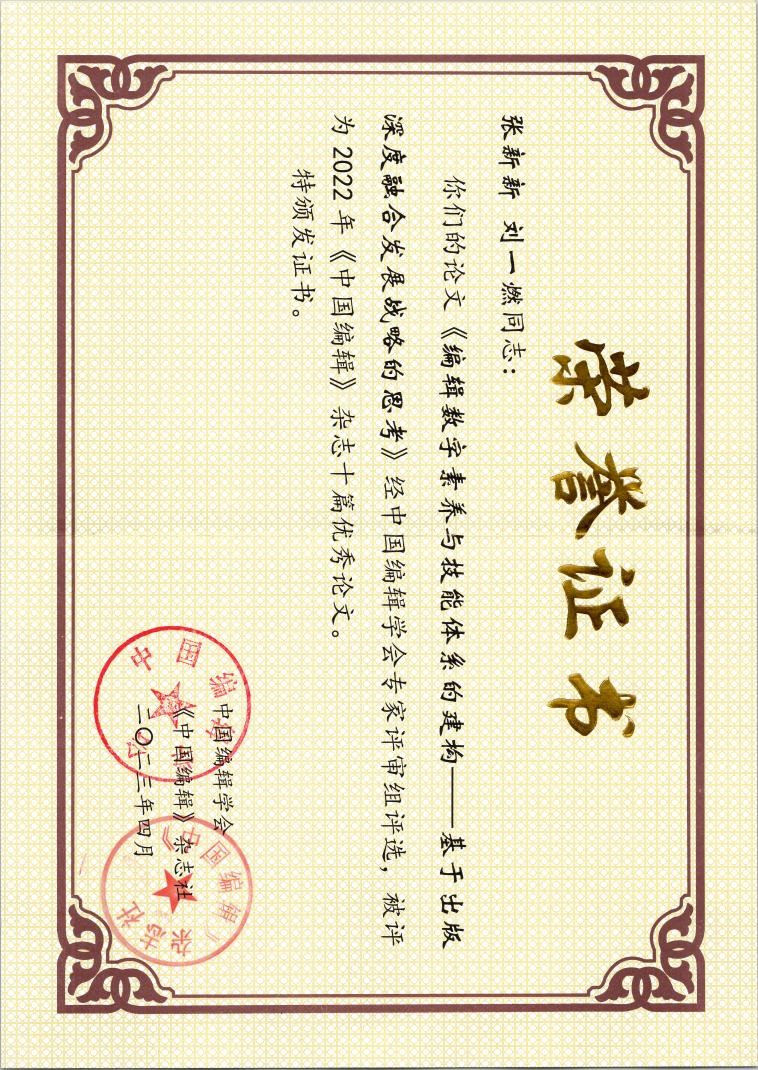 荣誉证书
张新新 刘一燃同志：
你们的论文《编辑数字素养与技能体系的建构——基于出版
深度融合发展战略的思考》经中国编辑学会专家评审组评选，被评
为 2022 年《中国编辑》杂志十篇优秀论文。
特颁发证书。
中国编辑学会
《中国编辑》杂志社
二〇二三年四月
中国编辑学会
《中国编辑》杂志社